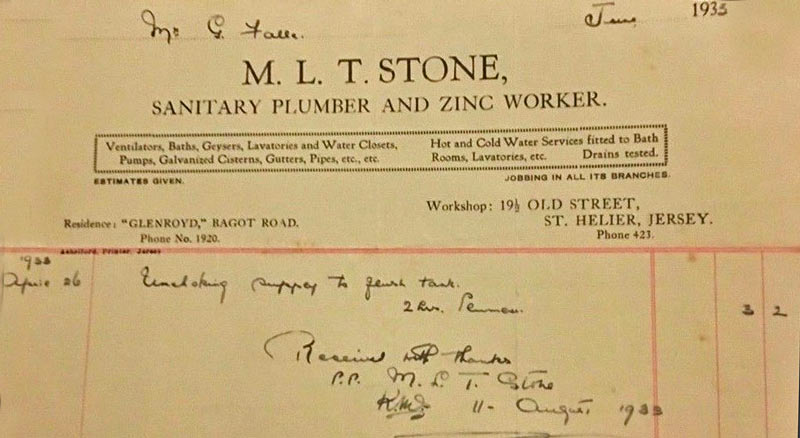 Mr G. Falle.
June 1933
M. L. T. STONE,
SANITARY PLUMBER AND ZINC WORKER.
Ventilators, Baths, Geysers, Lavatories and Water Closets,
Pumps, Galvanized Cisterns, Gutters, Pipes, etc., etc.
Hot and Cold Water Services fitted to Bath
Rooms, Lavatories, etc. Drains tested.
ESTIMATES GIVEN.
JOBBING IN ALL ITS BRANCHES.
Workshop: 19½ OLD STREET,
ST. HELIER, JERSEY.
Phone 423.
Residence: "GLENROYD," BAGOT ROAD.
Phone No. 1920.
Printer, Jersey
1933
April 26 supply to flush tank.
2 hrs. 3 2
Received with thanks
P.P. M. L. T. Stone
11 August 1933